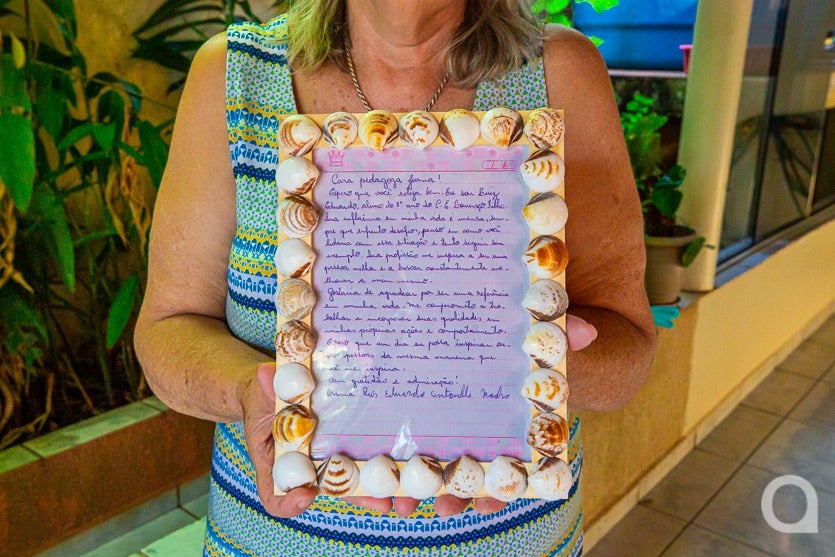 Cara pedagoga Joana!
Espero que você esteja bem. Eu sou Luiz
Eduardo, aluno do 8º ano do C. E. Lourenço Filho.
Sua influência em minha vida é imensa, sem-
pre que enfrento desafios, penso em como você
lidaria com essa situação e tento seguir seu
exemplo. Sua profissão me inspira a ser uma
pessoa melhor e a buscar constantemente me-
lhorar a mim mesmo.
Gostaria de agradecer por ser uma referência
em minha vida. Me comprometo a tra-
balhar e incorporar suas qualidades em
minhas próprias ações e comportamento.
Espero que um dia eu possa inspirar ou-
tras pessoas da mesma maneira que
você me inspira.
Com gratidão e admiração!
Luiz Eduardo